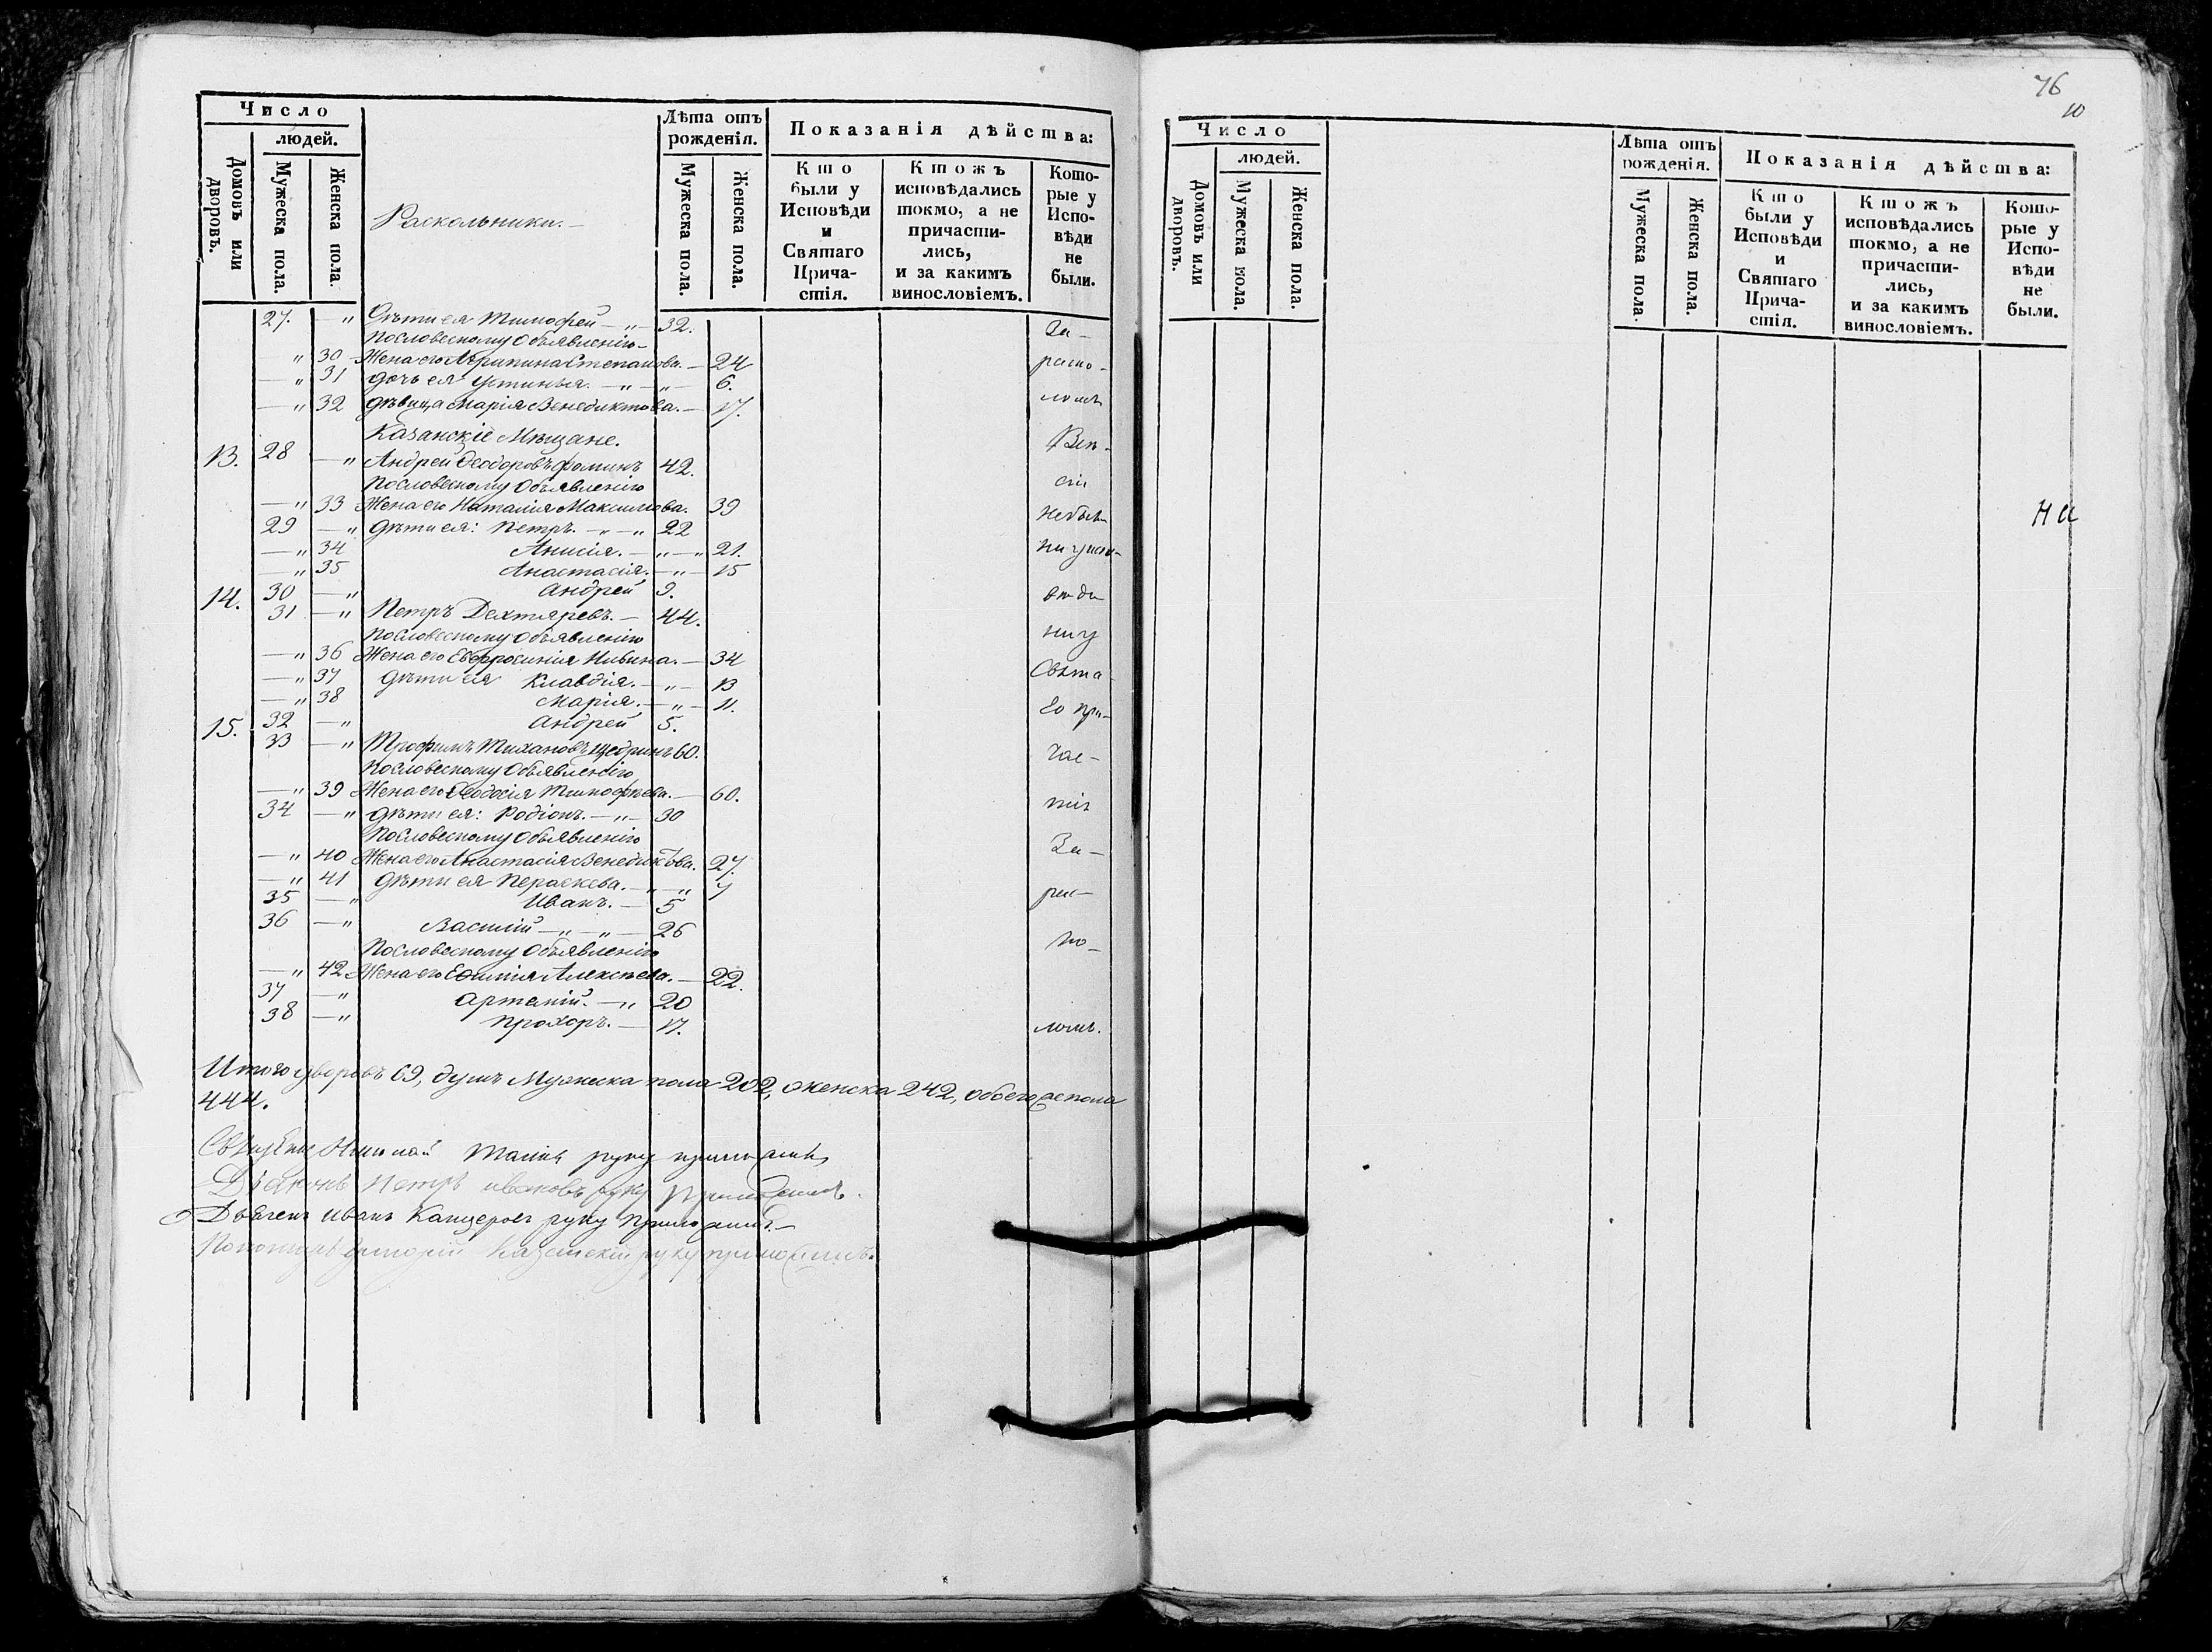 Число
людей.
Домовъ или дворовъ.
Мужеска пола.
Женска пола.
Раскольники.—
Лѣта отъ рожденія.
Мужеска пола.
Женска пола.
Показанія дѣйства:
Кто были у Исповѣди и Святаго Причастія.
Ктожъ исповѣдались токмо, а не причастились, и за какимъ винословіемъ.
Которые у Исповѣди не были.
27. — „ Дѣти ея Тимофей — „ — 32. За-
По словесному объявленію
— „ 30 Жена его Агрипина Степанова. — 24 раско-
— „ 31 дочь ея Устинья. — „ — „ — 6.
— „ 32 дѣвица Марія Венедиктова. — 17. ломъ
Казанскіе Мѣщане. Всѣ-
13. 28 — „ Андрей Ѳеодоровъ Фоминъ 42.
По словесному объявленію сіи
— „ 33 Жена его Наталія Максимова. 39
29 — „ Дѣти ея: Петръ. — „ — „ 22 небыли
— „ 34 Анисія. — „ — „ 21. ни у испо-
— „ 35 Анастасія. — „ — 15
30 — „ Андрей 9. вѣди
14. 31 — „ Петръ Дехтяревъ. — 44.
По словесному объявленію ни у
— „ 36 Жена его Евфросинія — 34
— „ 37 дѣти ея Клавдія. — „ — 13 Свята-
— „ 38 Марія. — „ — 11.
32 — „ Андрей 5. го при-
15. 33 — „ Трофимъ Щедринъ 60.
По словесному объявленію час-
— „ 39 Жена его Ѳеодосія Тимофѣева. — 60.
34 — „ дѣти ея: Родіонъ. — „ — 30 тія
По словесному объявленію
— „ 40 Жена его Анастасія Венедиктова. 27. За-
— „ 41 дѣти ея Пераскева. — „ — „ 7
35 — „ Иванъ. — 5 рас-
36 — „ Василій — „ — „ — 26
По словесному объявленію ко-
— „ 42 Жена его Алексѣева. — 22.
37 — „ — „ 20
38 — „ Прохоръ. — 17. ломъ.
Итого дворовъ 69, душъ Мужеска пола 202, женска 242, обоего пола
444.
Николай руку приложилъ
Діаконъ Петръ Ивановъ руку приложилъ.
Дьячекъ Иванъ руку приложилъ.—
Пономарь Григорій Казанскій руку приложилъ.
76
10
Число
людей.
Домовъ или дворовъ.
Мужеска пола.
Женска пола.
Лѣта отъ рожденія.
Мужеска пола.
Женска пола.
Показанія дѣйства:
Кто были у Исповѣди и Святаго Причастія.
Ктожъ исповѣдались токмо, а не причастились, и за какимъ винословіемъ.
Которые у Исповѣди не были.
На